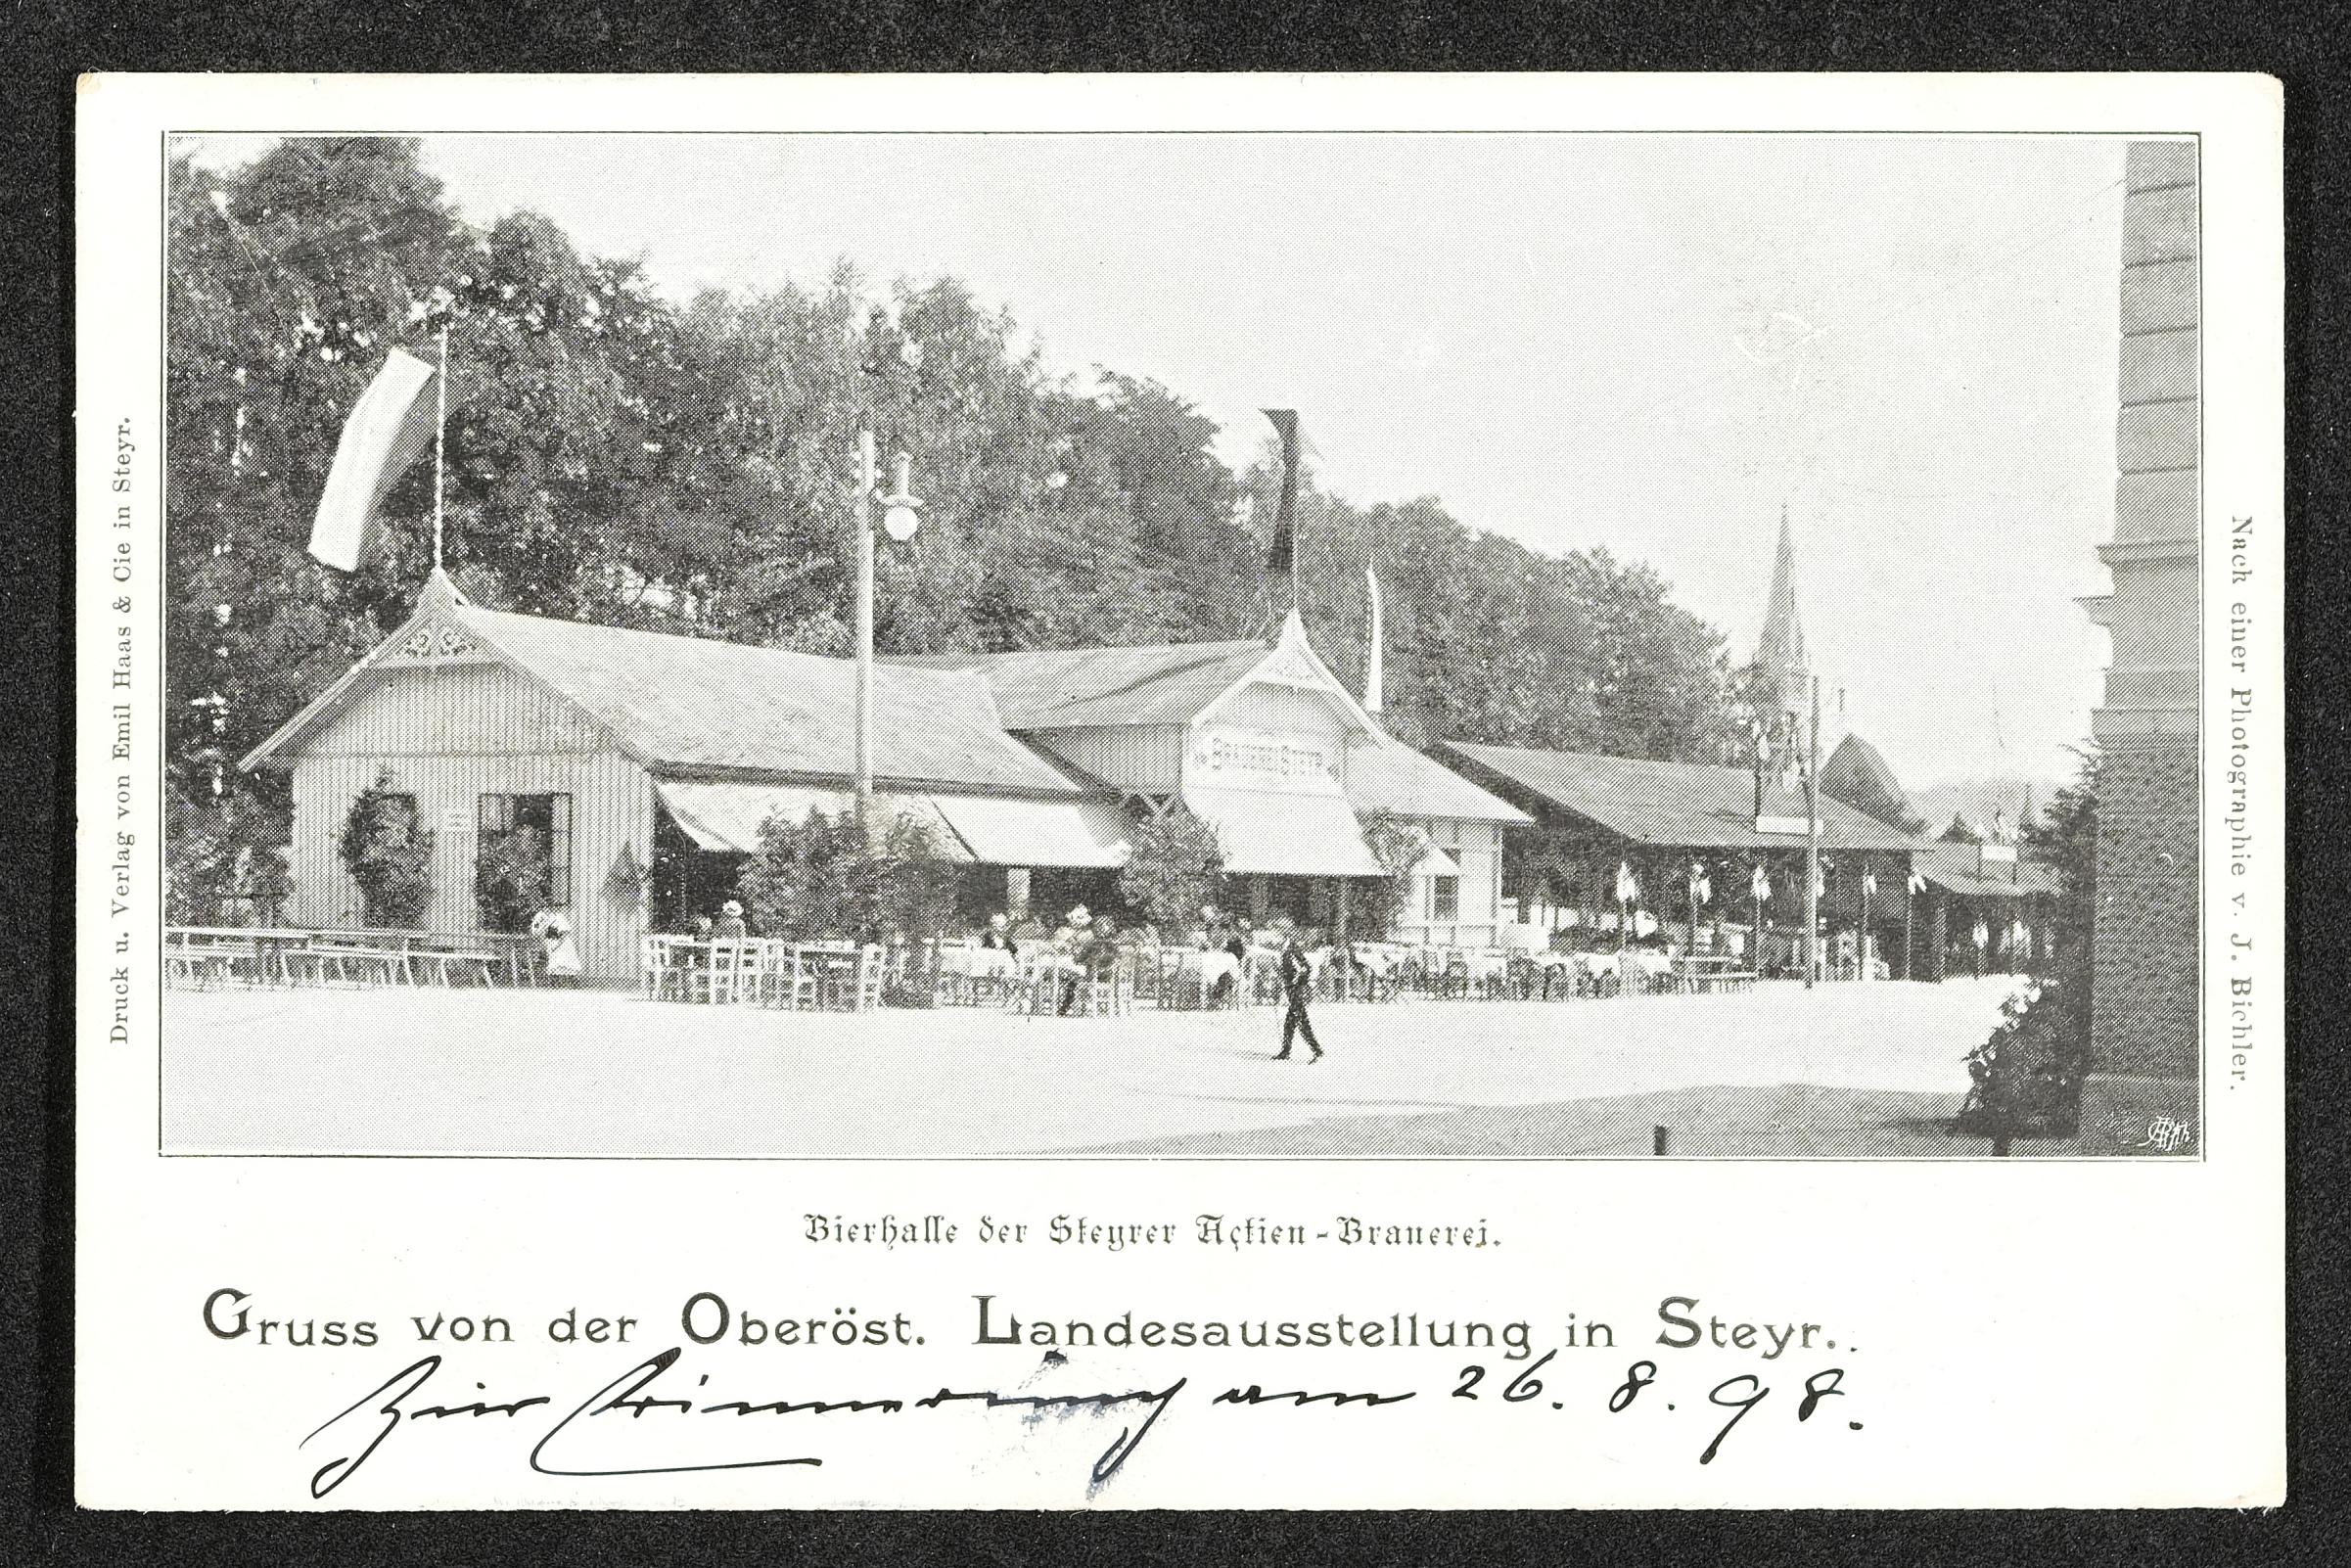 BRAUEREI STEYR
Druck u. Verlag von Emil Haas & Cie in Steyr.
Nach einer Photographie v. J. Bichler.
Bierhalle der Steyrer Actien-Brauerei.
Gruss von der Oberöst. Landesausstellung in Steyr.
Zur Erinnerung am 26. 8. 98.